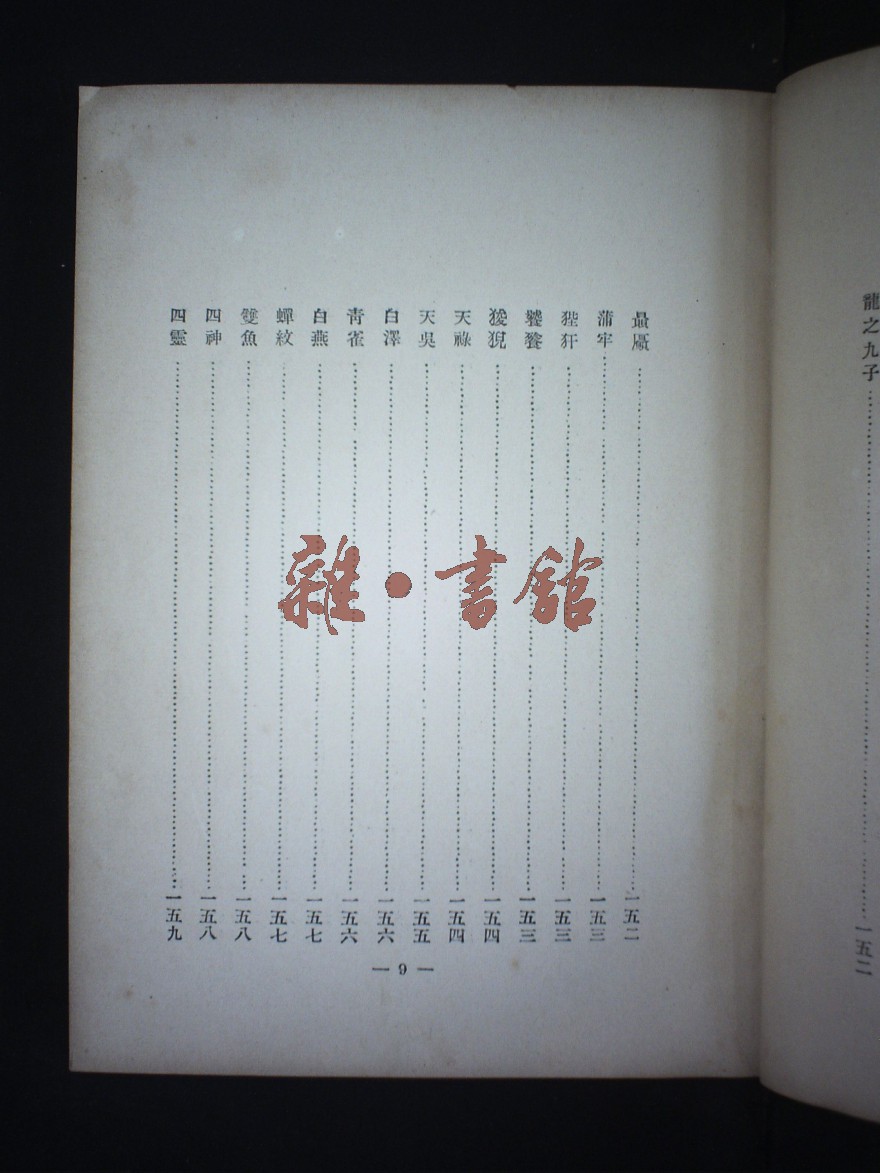 龍之九子……一五二
贔屭……一五二
蒲牢……一五三
狴犴……一五三
饕餮……一五三
狻猊……一五四
天祿……一五四
天吳……一五五
白澤……一五六
青雀……一五六
白燕……一五七
蟬紋……一五七
雙魚……一五八
四神……一五八
四靈……一五九
— 9 —
雜·書館